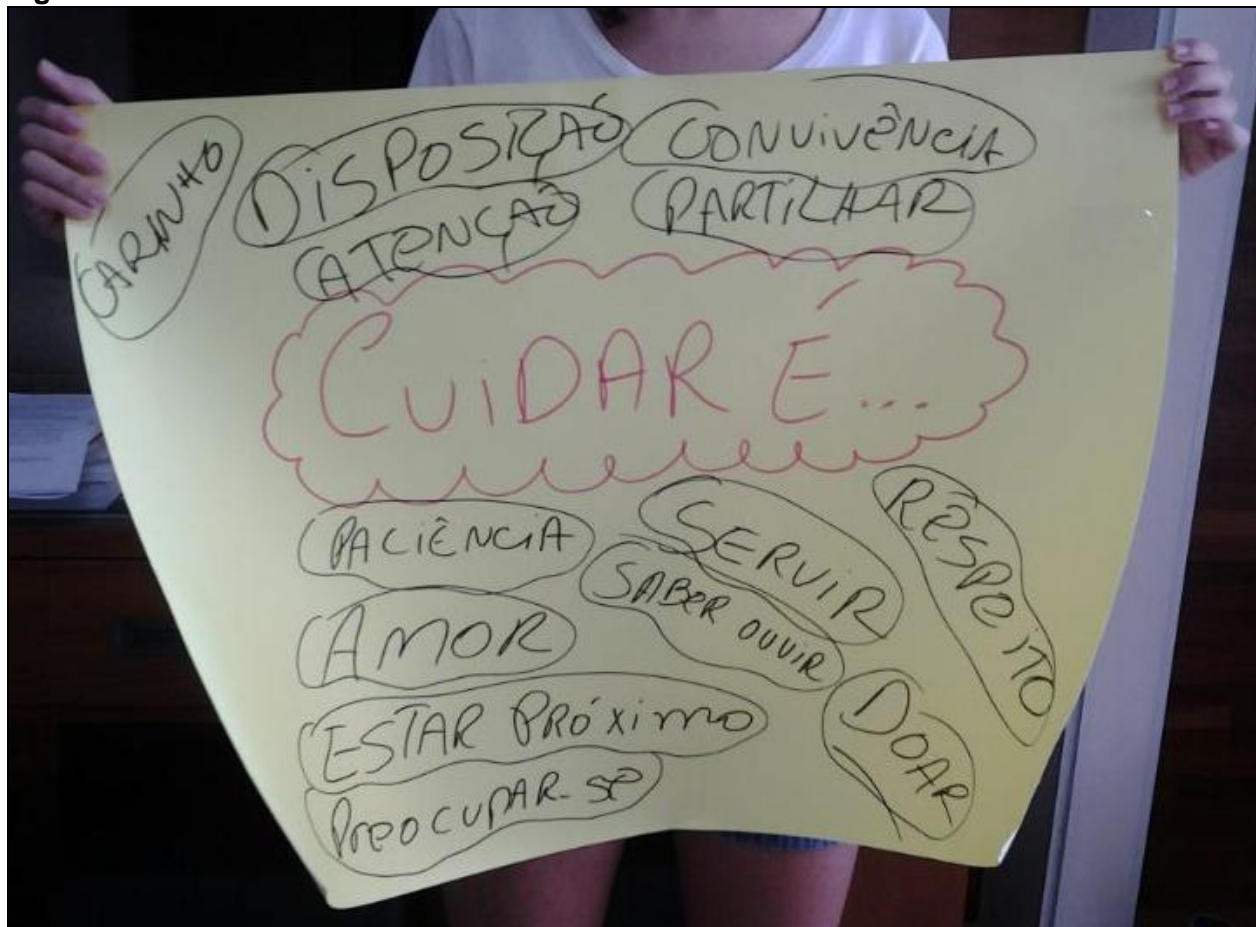 CARINHO
DISPOSIÇÃO
CONVIVÊNCIA
ATENÇÃO
PARTILHAR
CUIDAR É...
PACIÊNCIA
SERVIR
RESPEITO
SABER OUVIR
AMOR
ESTAR PRÓXIMO
DOAR
PREOCUPAR-SE